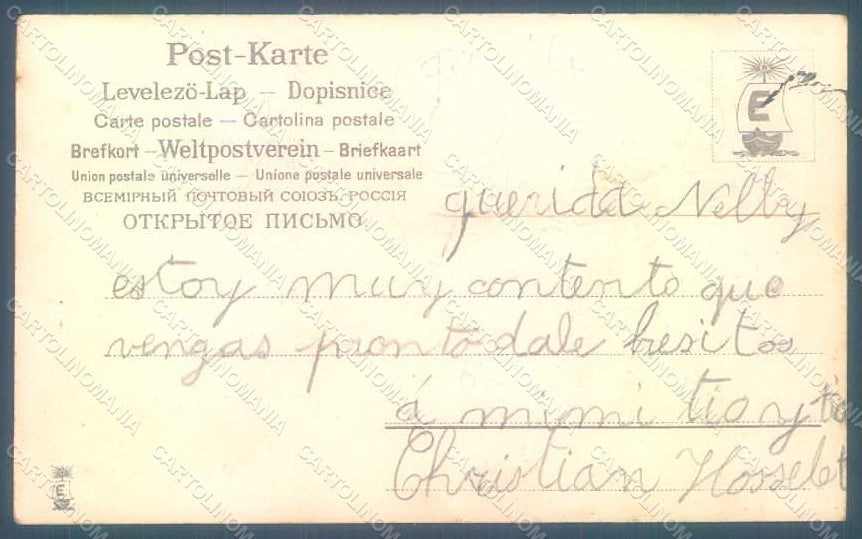 Post-Karte
Levelezö-Lap — Dopisnice
Carte postale — Cartolina postale
Brefkort — Weltpostverein — Briefkaart
Union postale universelle — Unione postale universale
ВСЕМІРНЫЙ ПОЧТОВЫЙ СОЮЗЪ. РОССІЯ
ОТКРЫТОЕ ПИСЬМО
E
querida Nelly
estoy muy contento que
vengas pronto dale besitos
á mimi tio y
Christian
E
CARTOLINOMANIA